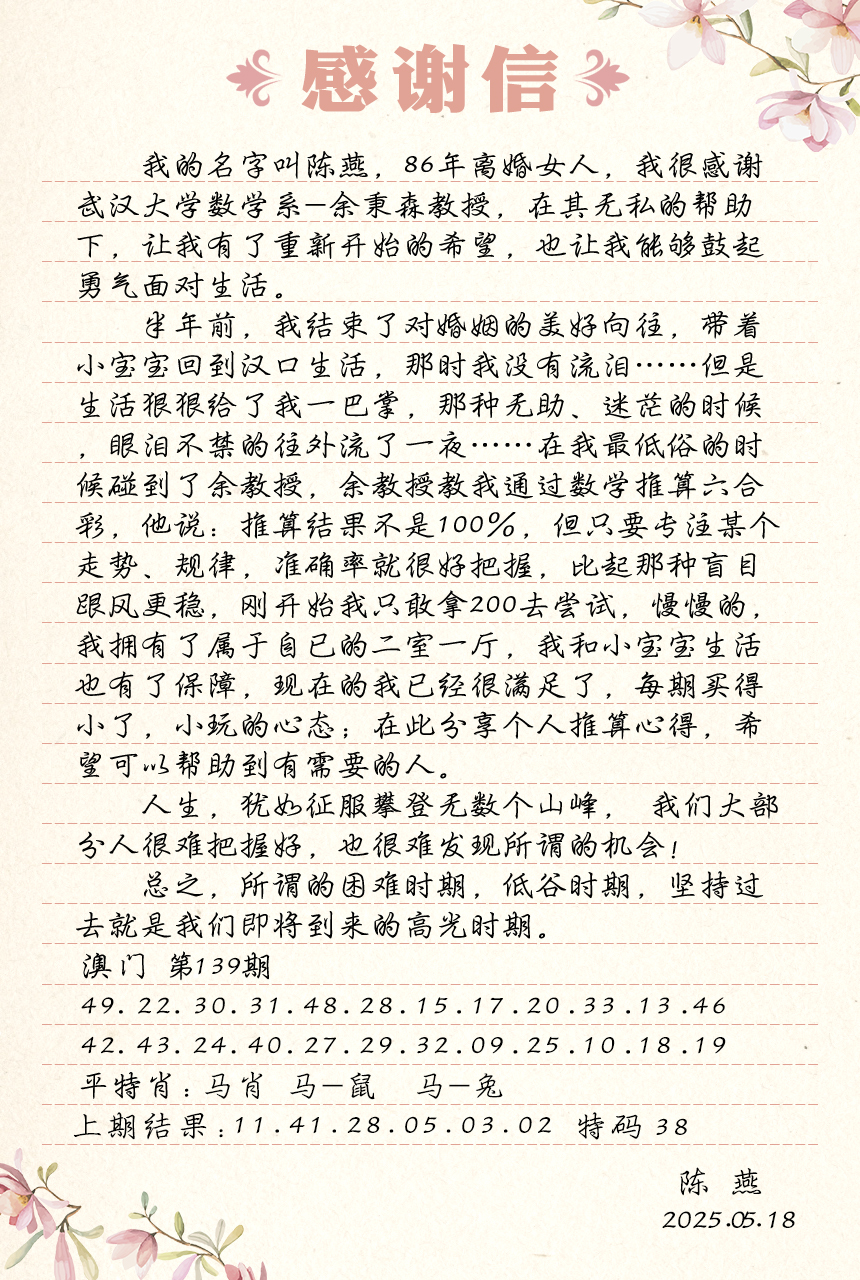 感谢信
我的名字叫陈燕，86年离婚女人，我很感谢
武汉大学数学系—余秉森教授，在其无私的帮助
下，让我有了重新开始的希望，也让我能够鼓起
勇气面对生活。
半年前，我结束了对婚姻的美好向往，带着
小宝宝回到汉口生活，那时我没有流泪……但是
生活狠狠给了我一巴掌，那种无助、迷茫的时候
，眼泪不禁的往外流了一夜……在我最低俗的时
候碰到了余教授，余教授教我通过数学推算六合
彩，他说：推算结果不是100%，但只要专注某个
走势、规律，准确率就很好把握，比起那种盲目
跟风更稳，刚开始我只敢拿200去尝试，慢慢的，
我拥有了属于自已的二室一厅，我和小宝宝生活
也有了保障，现在的我已经很满足了，每期买得
小了，小玩的心态；在此分享个人推算心得，希
望可以帮助到有需要的人。
人生，犹如征服攀登无数个山峰， 我们大部
分人很难把握好，也很难发现所谓的机会！
总之，所谓的困难时期，低谷时期，坚持过
去就是我们即将到来的高光时期。
澳门 第139期
49.22.30.31.48.28.15.17.20.33.13.46
42.43.24.40.27.29.32.09.25.10.18.19
平特肖：马肖 马—鼠 马—兔
上期结果：11.41.28.05.03.02 特码 38
陈 燕
2025.05.18